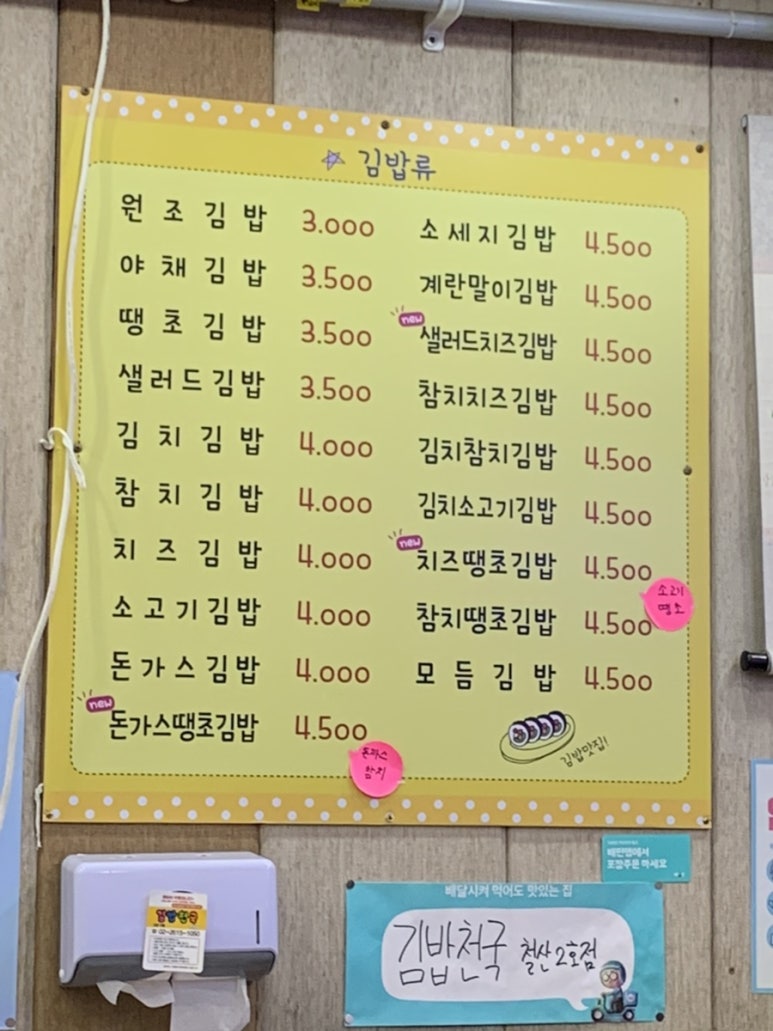 김밥류
원조김밥 3.000
야채김밥 3.500
땡초김밥 3.500
샐러드김밥 3.500
김치김밥 4.000
참치김밥 4.000
치즈김밥 4.000
소고기김밥 4.000
돈가스김밥 4.000
new
돈가스땡초김밥 4.500
소세지김밥 4.500
계란말이김밥 4.500
new
샐러드치즈김밥 4.500
참치치즈김밥 4.500
김치참치김밥 4.500
김치소고기김밥 4.500
new
치즈땡초김밥 4.500
참치땡초김밥 4.500
모듬김밥 4.500
소고기
땡초
돈까스
참치
김밥맛집!
배민앱에서
포장주문 하세요
배달시켜 먹어도 맛있는 집
김밥천국 철산2호점
김밥천국
02-2615-1050